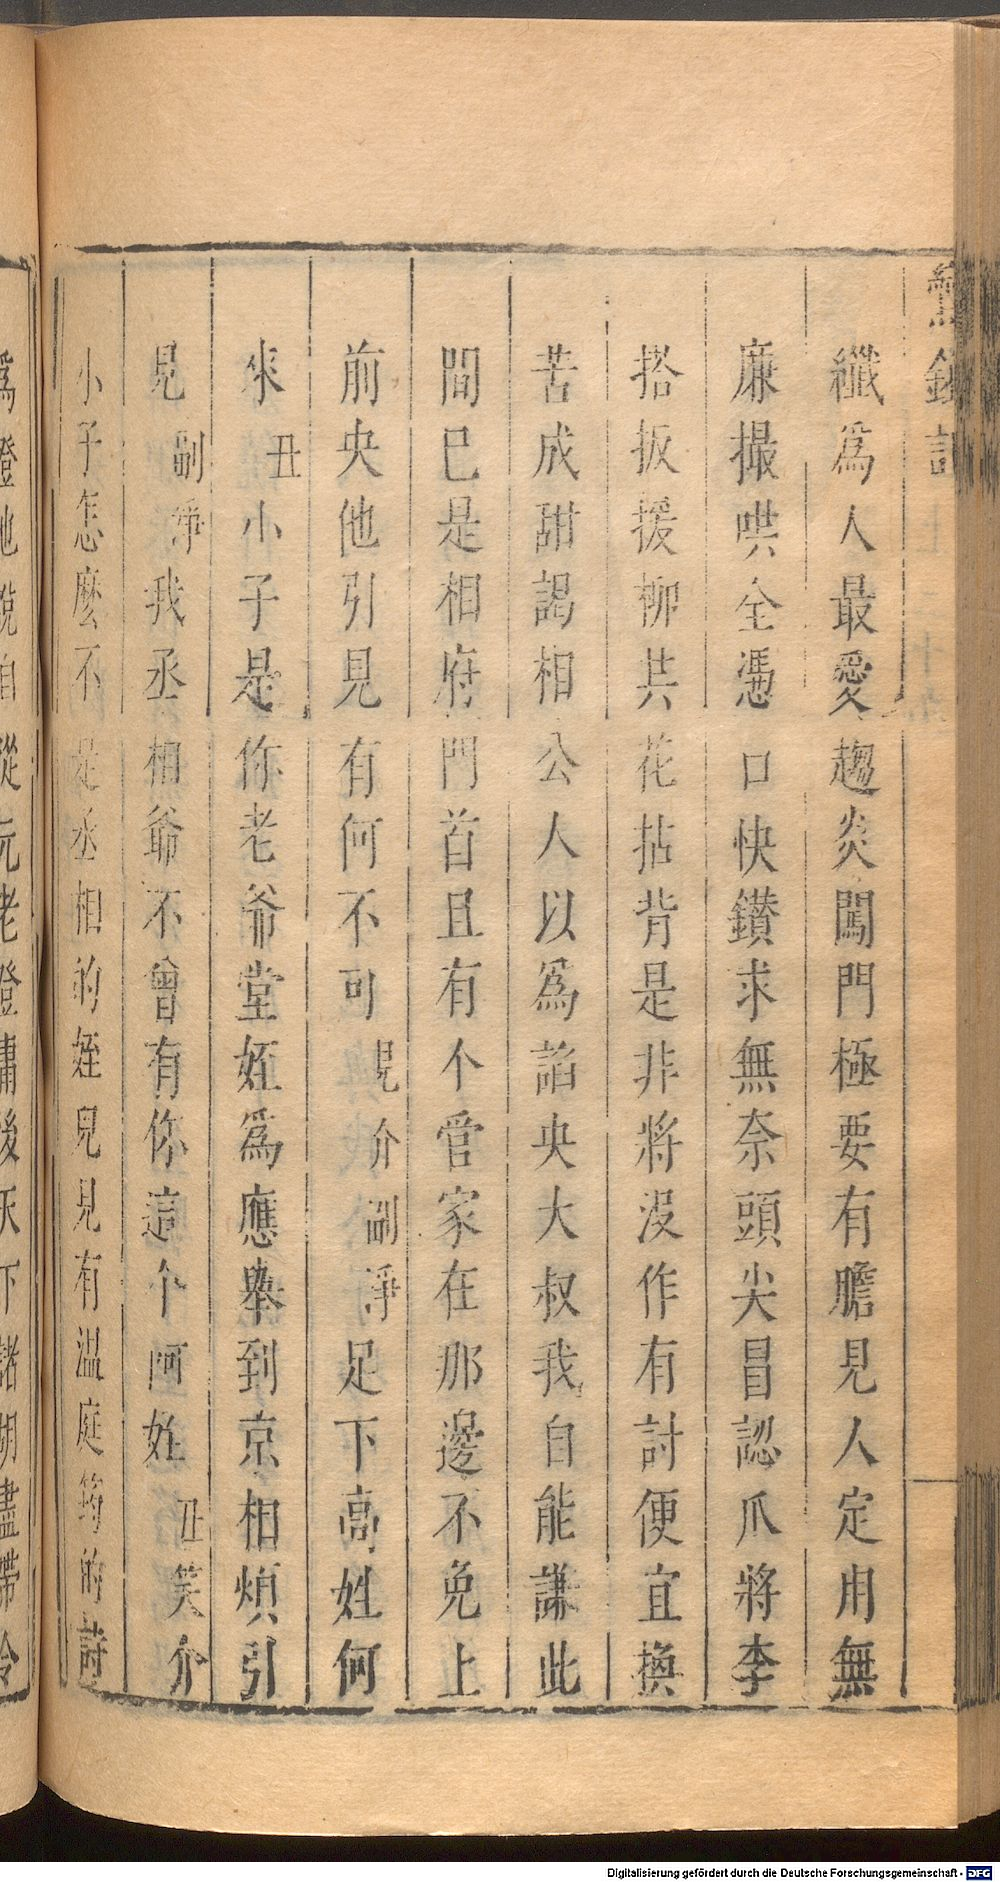 鸞鎞記
纖爲人最愛趨炎闖門極要有膽見人定用無
廉撮哄全憑口快鑚求無奈頭尖冒認爪將李
搭扳援柳共花拈背是非將沒作有討便宜換
苦成甜謁相公人以爲諂央大叔我自能謙此
間已是相府門首且有个官家在那邊不免上
前央他引見有何不可見介副淨足下高姓何
來丑小子是你老爺堂姪爲應舉到京相煩引
見副淨我丞相爺不曾有你這个阿姪丑笑介
小子怎麽不是丞相的姪兒見有温庭筠的詩
爲證他說自從元老登庸後天下諸胡盡帶令
Digitalisierung gefördert durch die Deutsche Forschungsgemeinschaft - DFG